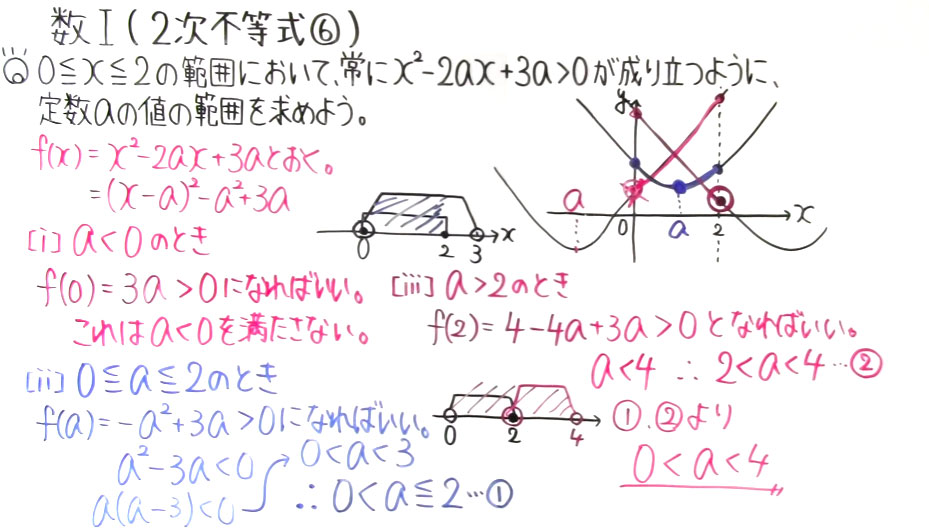 数I(2次不等式⑥)
⑥ 0≦x≦2の範囲において、常にx²-2ax+3a>0が成り立つように、
定数aの値の範囲を求めよう。
f(x)=x²-2ax+3aとおく。
=(x-a)²-a²+3a
[i] a<0のとき
f(0)=3a>0になればいい。
これはa<0を満たさない。
[ii] 0≦a≦2のとき
f(a)=-a²+3a>0になればいい。
a²-3a<0
a(a-3)<0
0<a<3
∴0<a≦2…①
0 2 3 x
y
a 0 a 2 x
[iii] a>2のとき
f(2)=4-4a+3a>0となればいい。
a<4 ∴2<a<4…②
0 2 4
①,②より
0<a<4